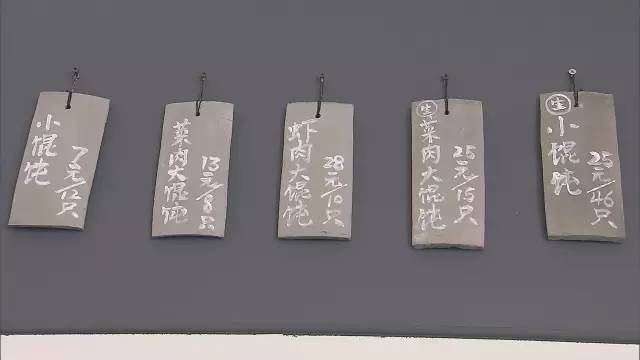 小馄饨
7元/12只
菜肉大馄饨
13元/8只
虾肉大馄饨
28元/10只
生菜肉大馄饨
25元/15只
生小馄饨
25元/46只